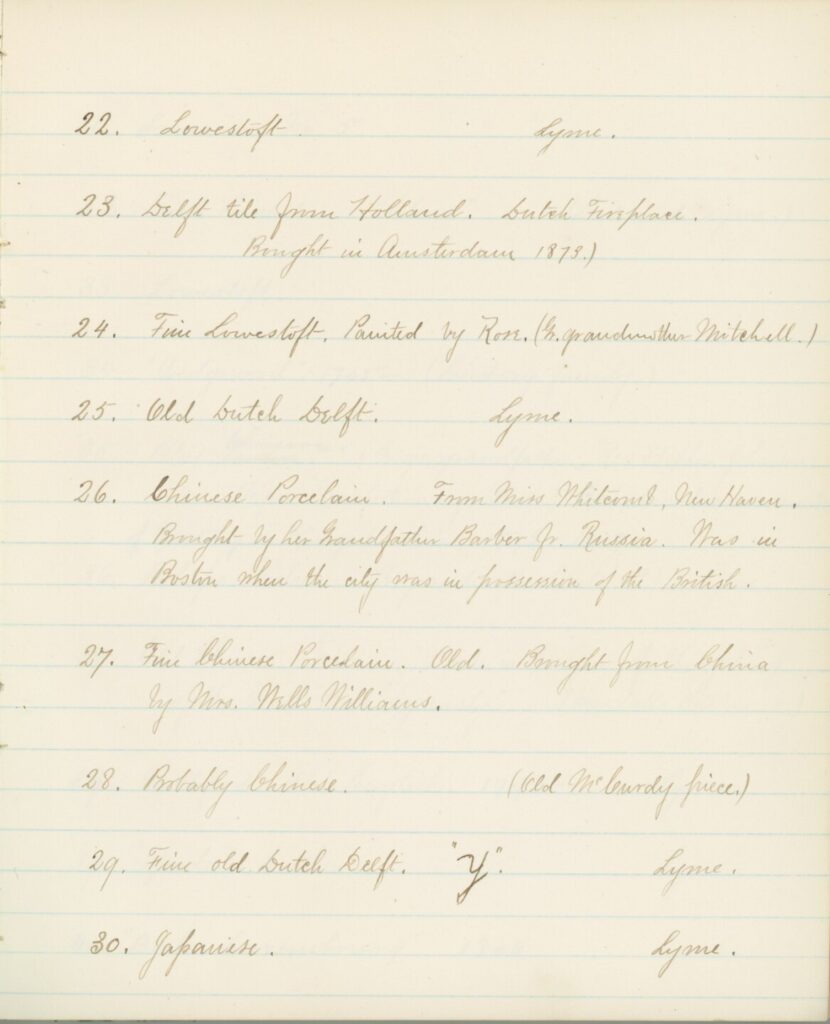 22. Lowestoft. Lyme.
23. Delft tile from Holland. Dutch Fireplace.
Bought in Amsterdam 1873.)
24. Fine Lowestoft. Painted by Rose. (Gr. grandmother Mitchell.)
25. Old Dutch Delft. Lyme.
26. Chinese Porcelain. From Miss Whitcomb, New Haven.
Brought by her Grandfather Barber fr. Russia. Was in
Boston when the city was in possession of the British.
27. Fine Chinese Porcelain. Old. Brought from China
by Mrs. Wells Williams.
28. Probably Chinese. (Old McCurdy piece.)
29. Fine old Dutch Delft. "Y". Lyme.
30. Japanese. Lyme.